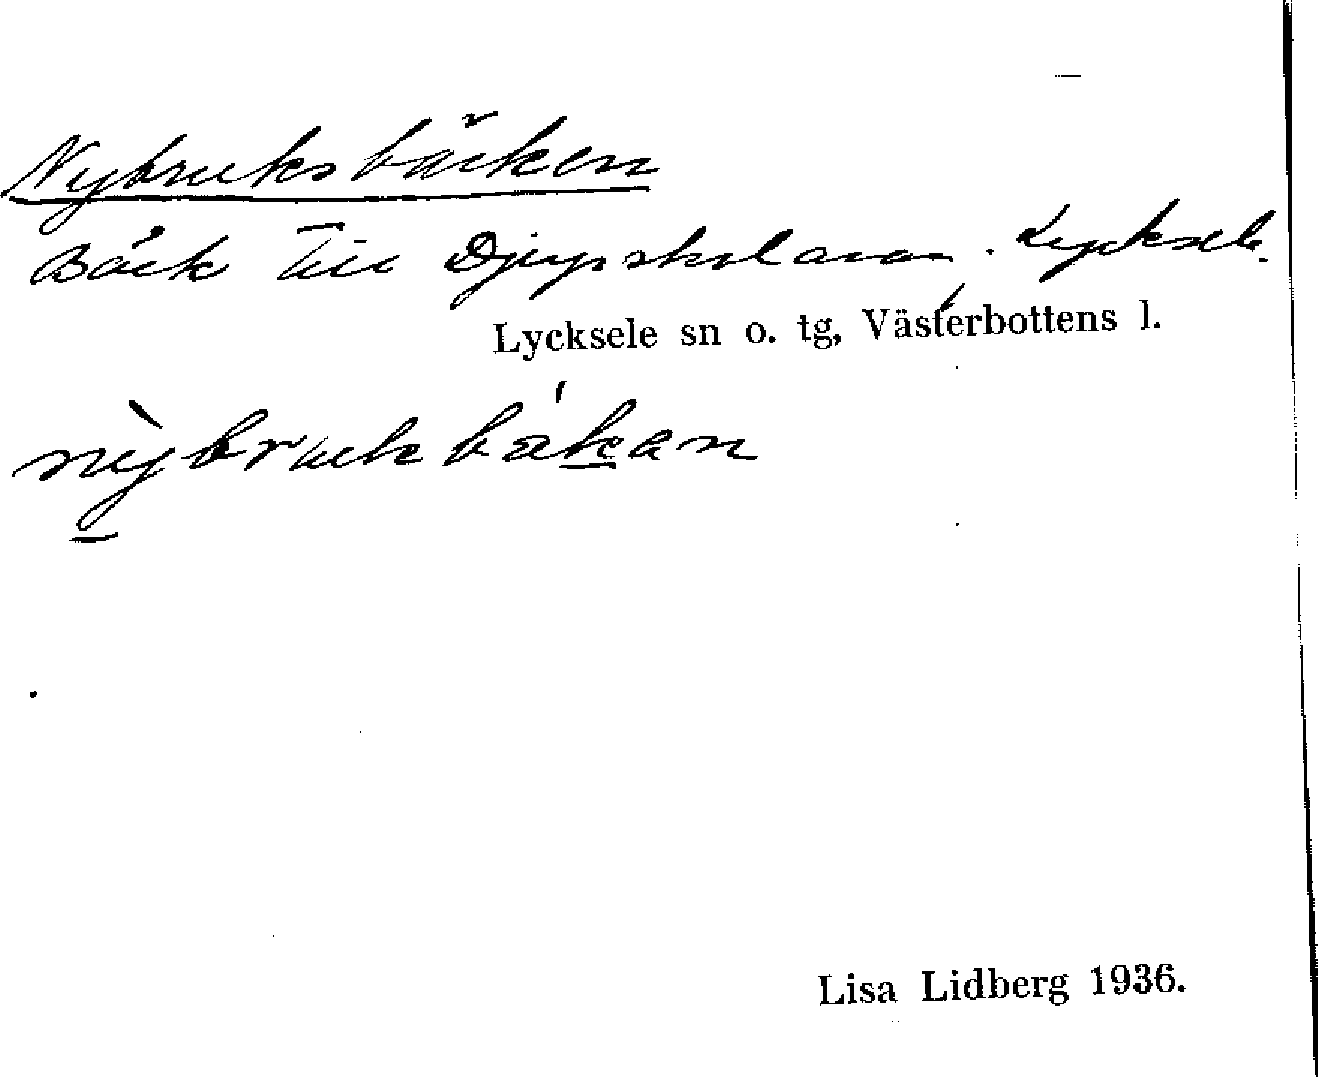 Nybruksbäcken
Bäck till Lycksele.
Lycksele sn o. tg, Västerbottens l.
nỳbrukbákan
Lisa Lidberg 1936.